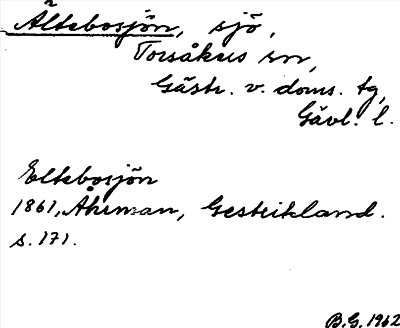 Ältebosjön, sjö,
Torsåkers sn,
Gästr. v. doms. tg,
Gävl. l.
Eltebosjön
1861, Åhrman, Gestrikland.
s. 171.
B.G. 1962